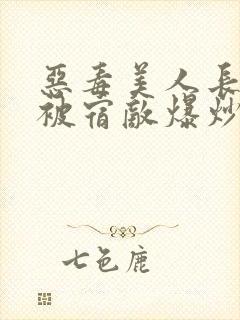 惡毒美人長
被宿敵爆炒
七色鹿